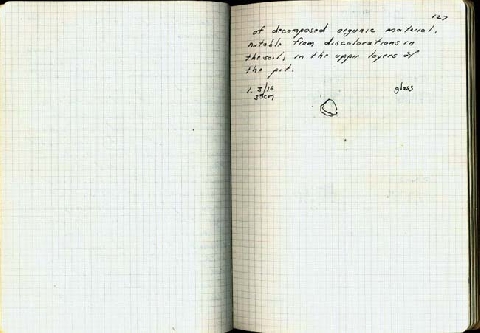 127
of decomposed organic material,
notable from discolorations in
the soil, in the upper layers of
the pit.
1. 3/16 glass
30cm